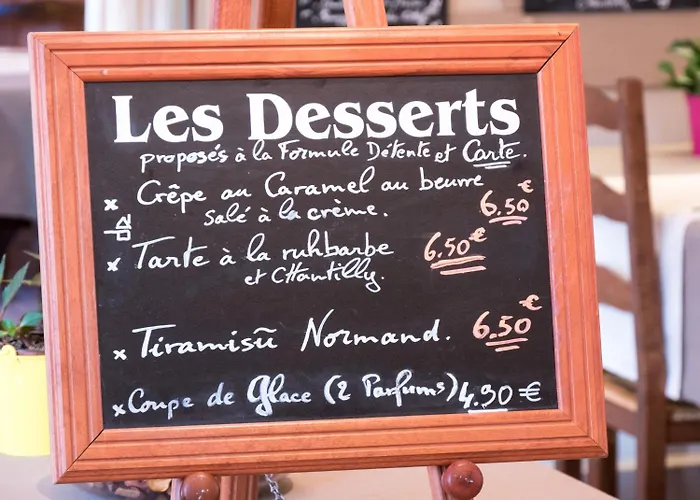 Les Desserts
proposés à la Formule Détente et Carte.
x Crêpe au Caramel au beurre
salé à la crème. 6,50 €
x Tarte à la ruhbarbe 6,50 €
et Chantilly.
x Tiramisū Normand. 6,50 €
x Coupe de Glace (2 Parfums) 4,90 €